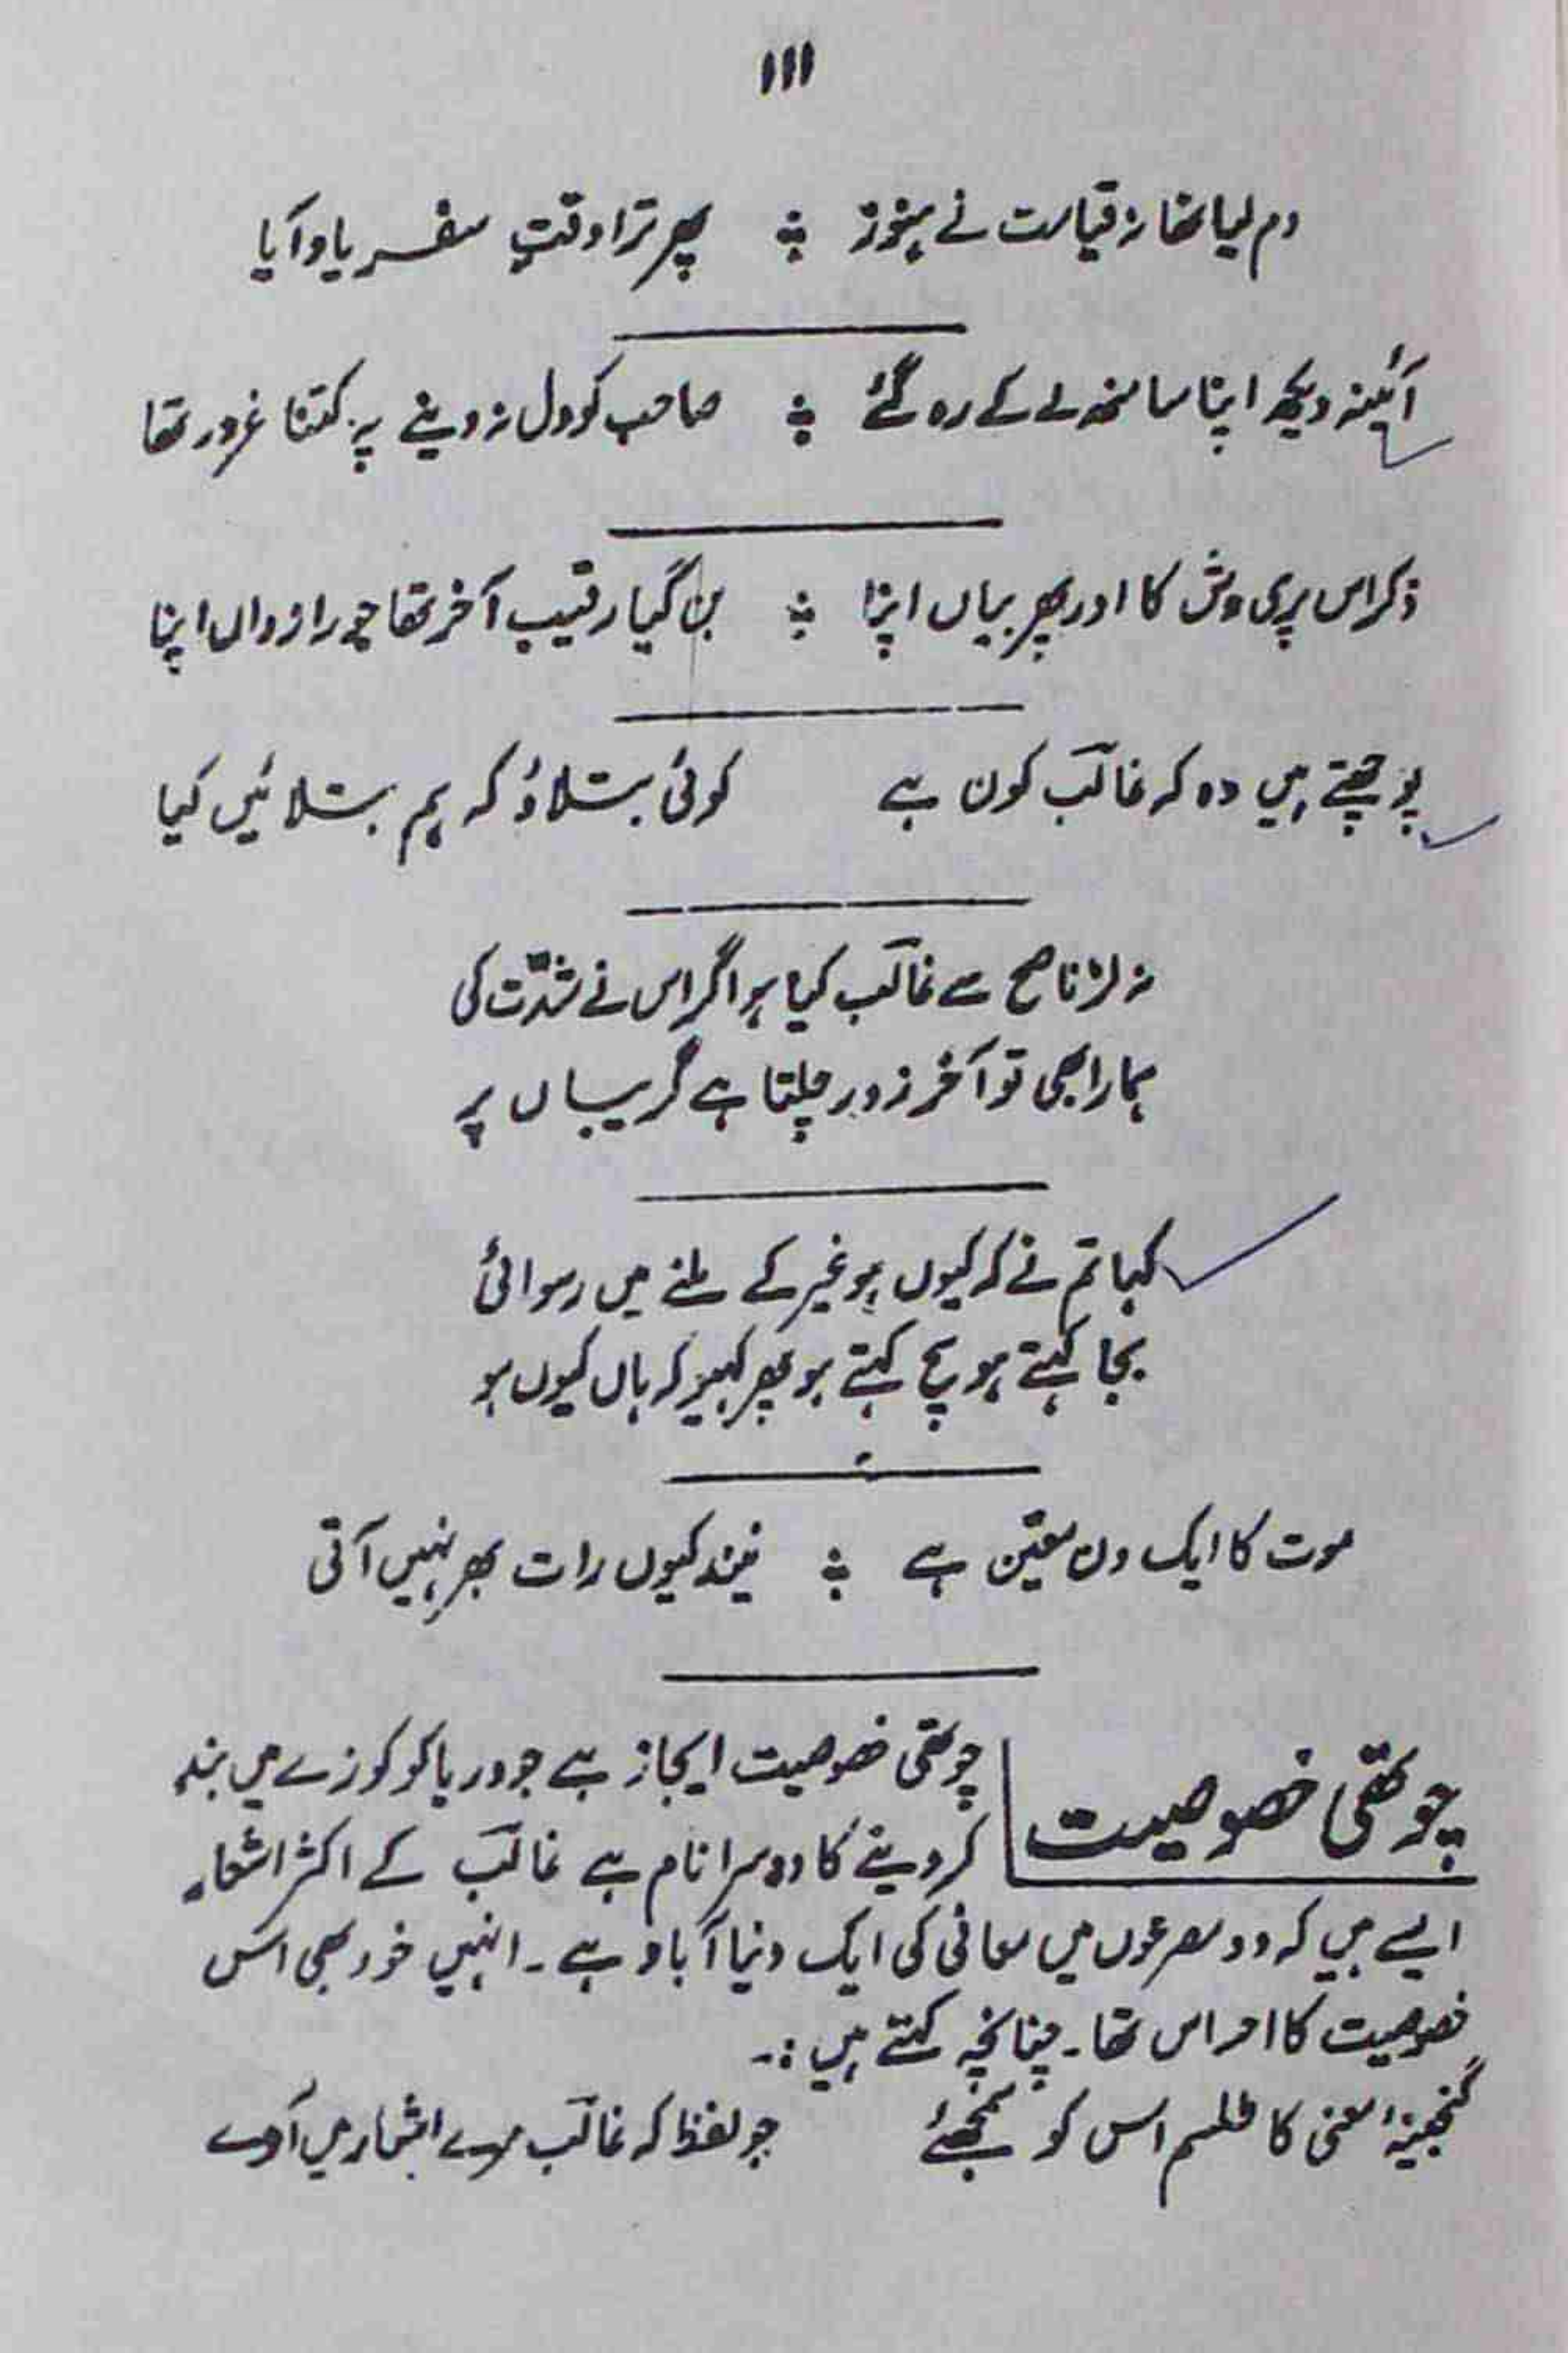 ۱۱۱
دم لیا تھا نہ قیامت نے ہنوز ؞ پھر ترا وقتِ سفر یاد آیا
آئینہ دیکھ اپنا سا منھ لے کے رہ گئے ؞ صاحب کو دل نہ دینے پہ کتنا غرور تھا
ذکر اس پری وش کا اور پھر بیاں اپنا ؞ بن گیا رقیب آخر تھا جو رازداں اپنا
پوچھتے ہیں وہ کہ غالبؔ کون ہے کوئی بتلاؤ کہ ہم بتلائیں کیا
نہ لڑ ناصح سے غالبؔ کیا ہوا گر اس نے شدّت کی
ہمارا بھی تو آخر زور چلتا ہے گریباں پر
کہا تم نے کہ کیوں ہو غیر کے ملنے میں رسوائی
بجا کہتے ہو سچ کہتے ہو پھر کہیو کہ ہاں کیوں ہو
موت کا ایک دن معیّن ہے ؞ نیند کیوں رات بھر نہیں آتی
چوتھی خصوصیت
چوتھی خصوصیت ایجاز ہے جو دریا کو کوزے میں بند
کر دینے کا دوسرا نام ہے غالبؔ کے اکثر اشعار
ایسے ہیں کہ دو مصرعوں میں معانی کی ایک دنیا آباد ہے۔ انہیں خود بھی اس
خصوصیت کا احساس تھا۔ چنانچہ کہتے ہیں :۔
گنجینۂ معنی کا طلسم اس کو سمجھئے جو لفظ کہ غالبؔ مرے اشعار میں آوے